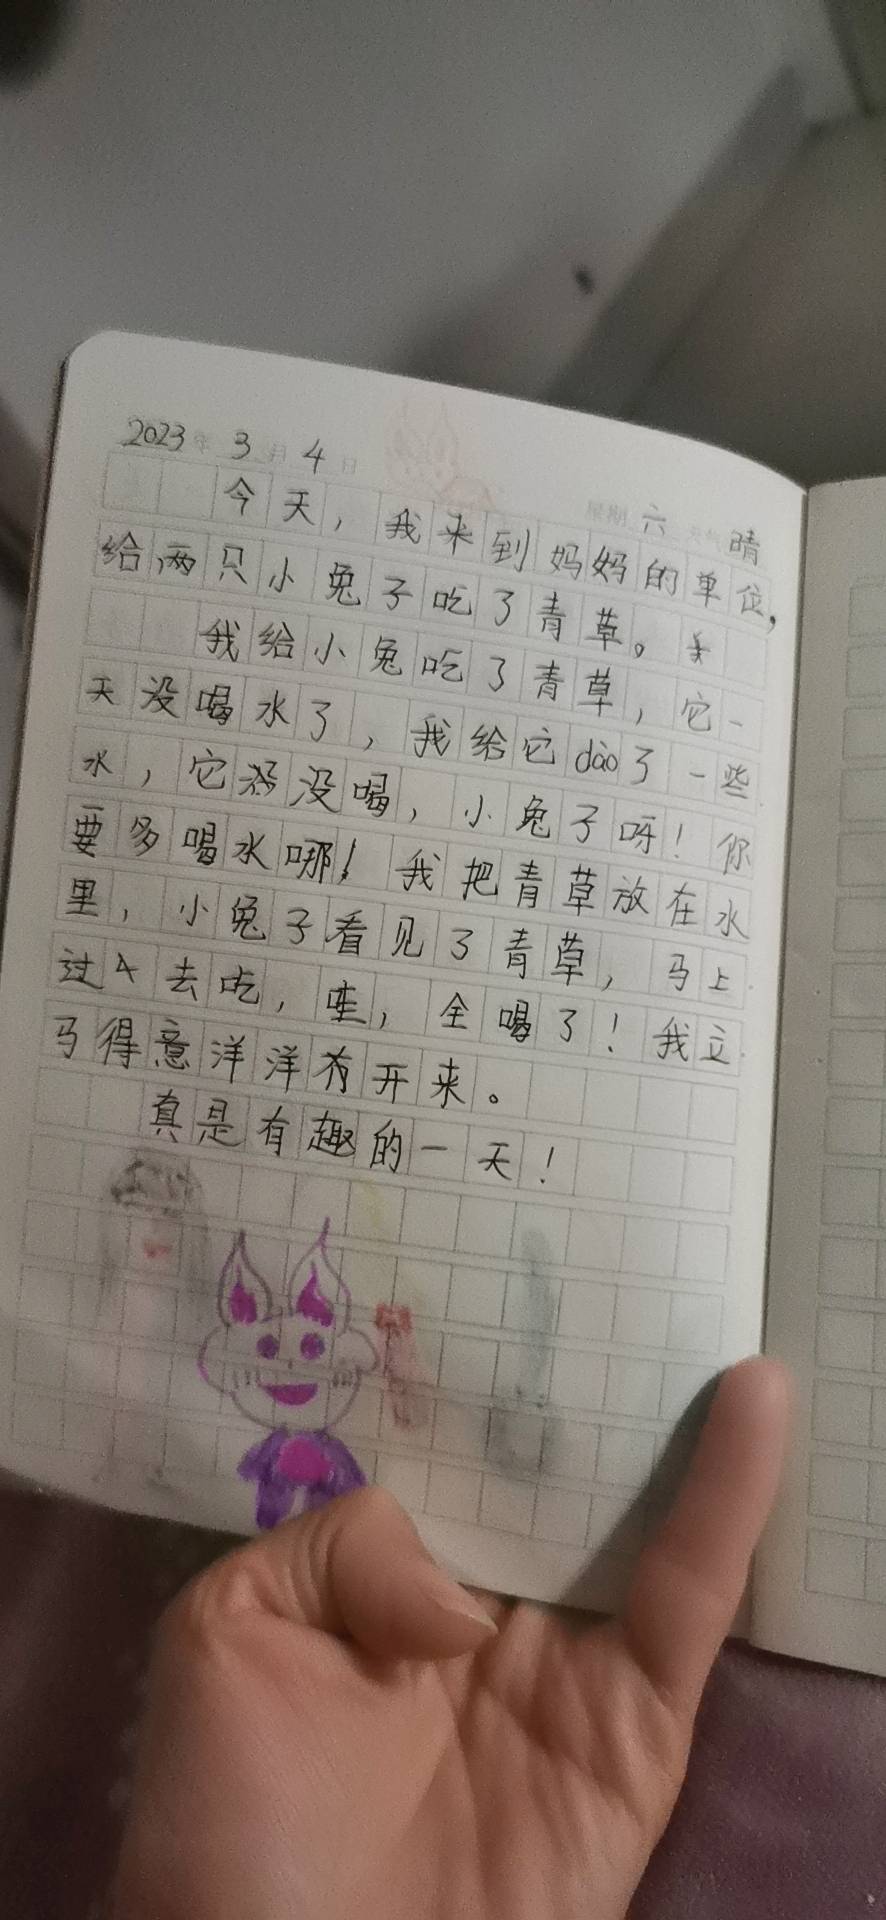 2023年 3月 4日 星期 六 天气 晴
今天，我来到妈妈的单位，
给两只小兔子吃了青草。
我给小兔吃了青草，它一
天没喝水了，我给它dào了一些
水，它没喝，小兔子呀！你
要多喝水哪！我把青草放在水
里，小兔子看见了青草，马上
过去吃，哇，全喝了！我立
马得意洋洋开来。
真是有趣的一天！